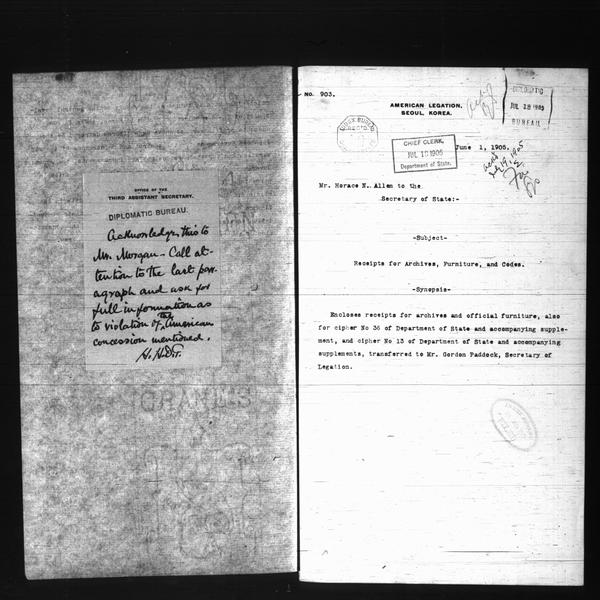 OFFICE OF THE
THIRD ASSISTANT SECRETARY.
DIPLOMATIC BUREAU.
Acknowledge this to
Mr. Morgan. Call at-
tention to the last par-
agraph and ask for
full information as
to violation of the American
concession mentioned.
H.H.D.P.
No. 903.
AMERICAN LEGATION,
SEOUL, KOREA.
DIPLOMATIC
JUL 28 1905
BUREAU
INDEX BUREAU
REC'D.
CHIEF CLERK,
JUL 18 1905
Department of State.
June 1, 1905.
Mr. Horace N. Allen to the
Secretary of State:-
-Subject-
Receipts for Archives, Furniture, and Codes.
-Synopsis-
Encloses receipts for archives and official furniture, also
for cipher No 36 of Department of State and accompanying supple-
ment, and cipher No 13 of Department of State and accompanying
supplements, transferred to Mr. Gordon Paddock, Secretary of
Legation.